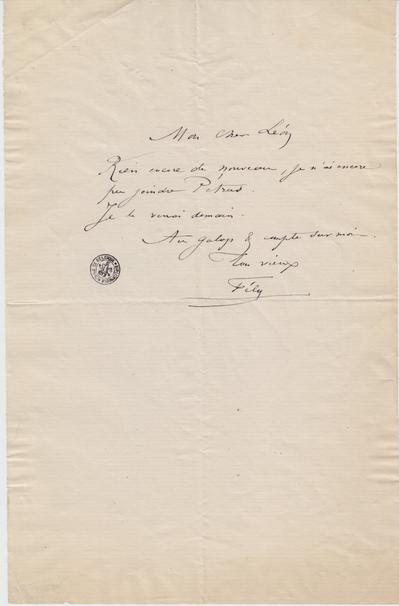 Mon cher Léon
Rien encore de nouveau, je n'ai encore
pu joindre Pétrus.
Je le verrai demain.
Au galop & compte sur moi.
Ton vieux
Fély